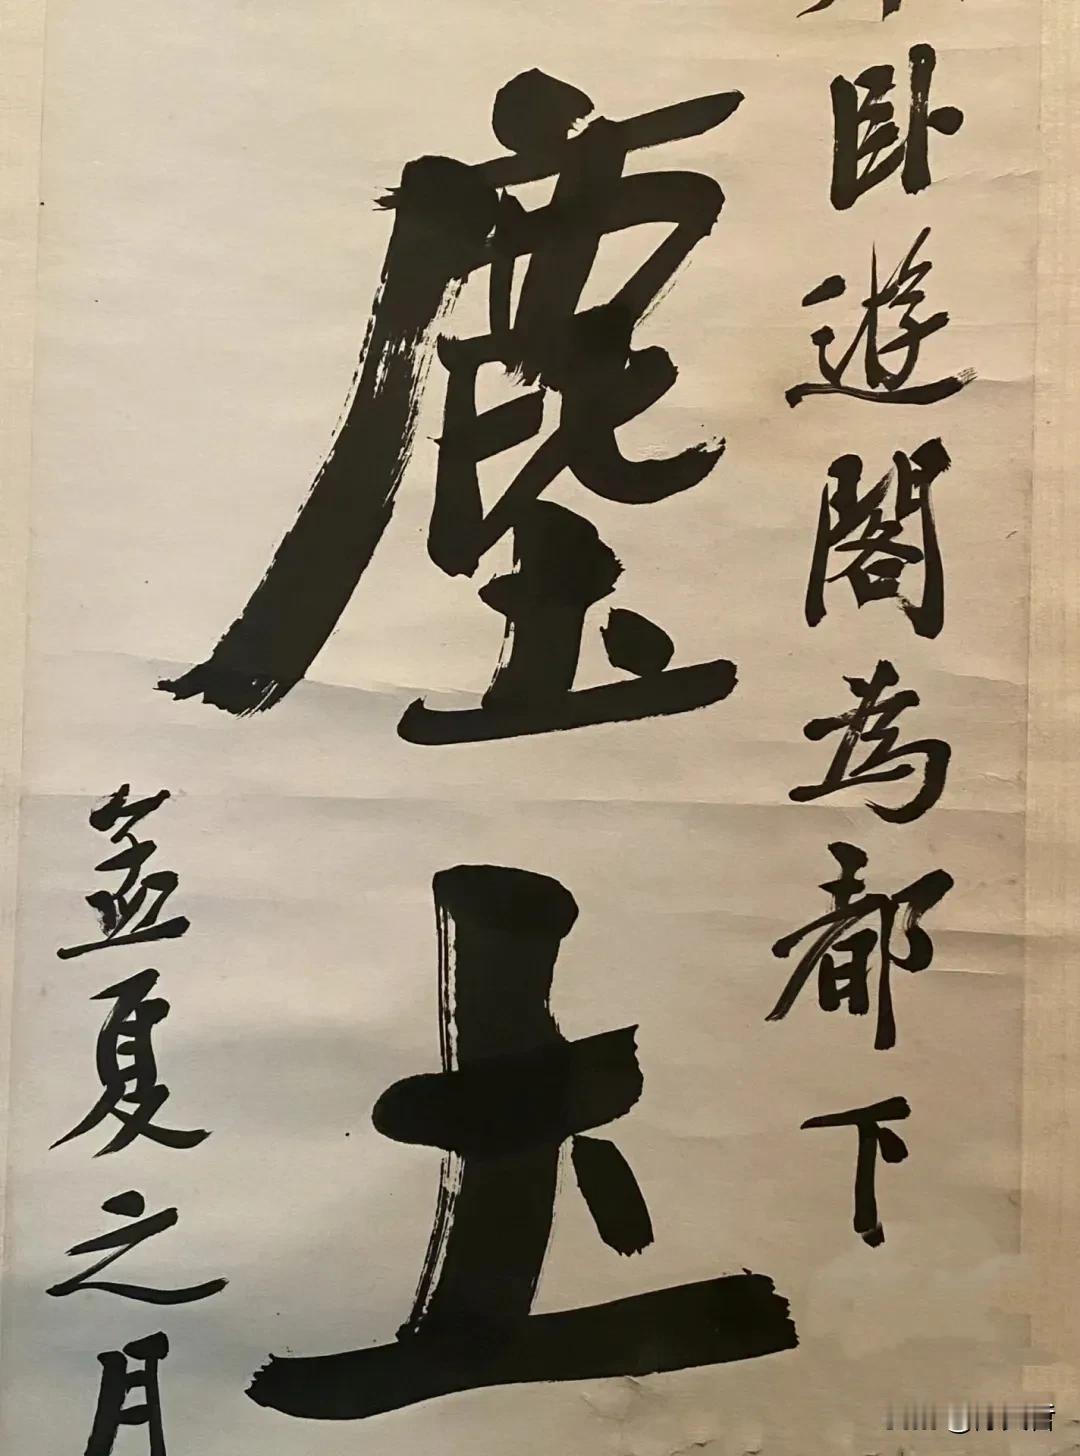 卧遊閣為都下
塵土
孟夏之月